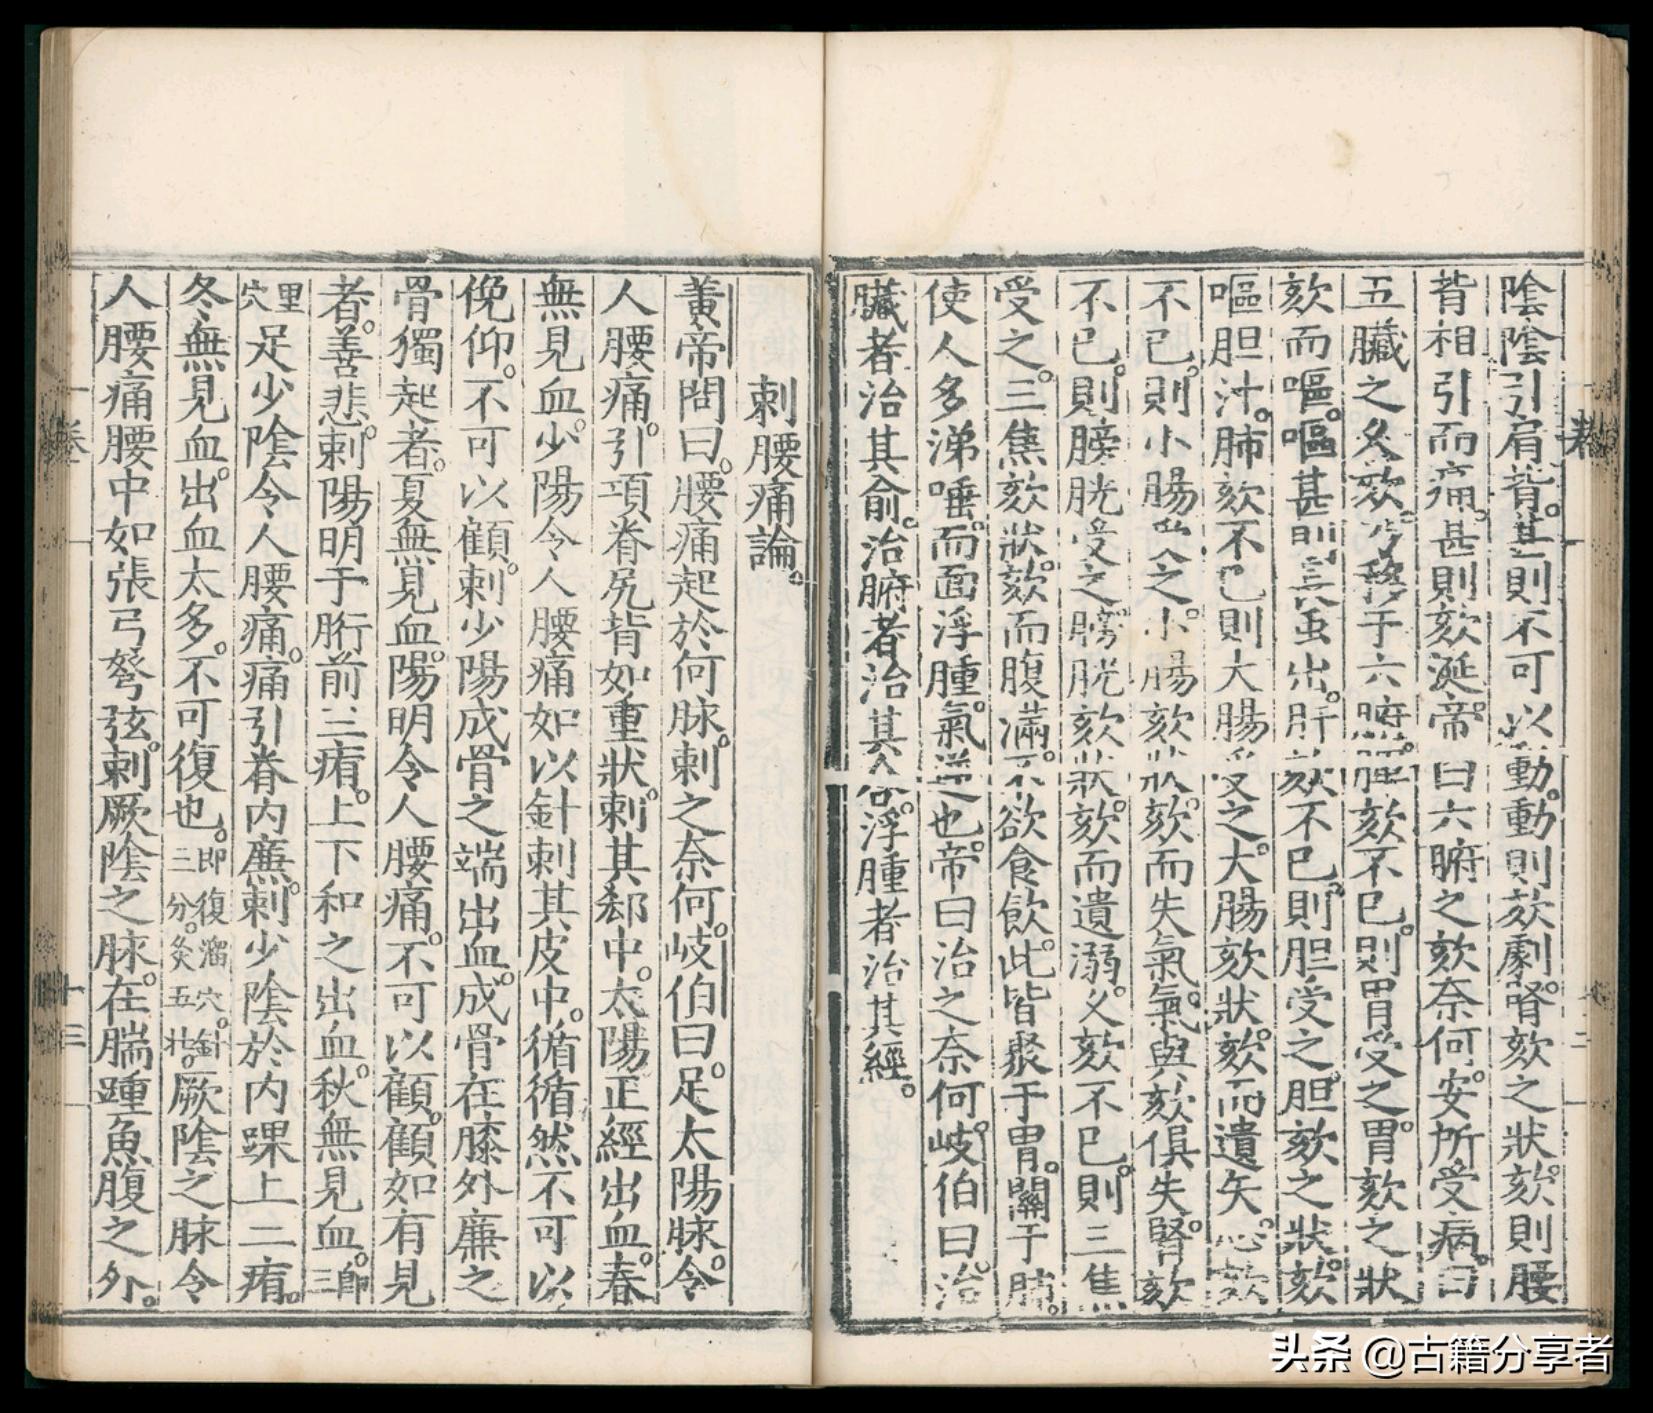 陰陰引肩背甚則不可以動動則欬劇腎欬之狀欬則腰
背相引而痛甚則欬涎帝曰六腑之欬奈何安所受病曰
五臟之久欬乃移于六腑脾欬不已則胃受之胃欬之狀
欬而嘔嘔甚則長虫出肝欬不已則胆受之胆欬之狀欬
嘔胆汁肺欬不已則大腸受之大腸欬狀欬而遺矢心欬
不已則小腸受之小腸欬狀欬而失氣氣與欬俱失腎欬
不已則膀胱受之膀胱欬狀欬而遺溺久欬不已則三焦
受之三焦欬狀欬而腹滿不欲食飲此皆聚于胃關于肺
使人多涕唾而面浮腫氣逆也帝曰治之奈何岐伯曰治
臟者治其俞治腑者治其合浮腫者治其經
刺腰痛論
黃帝問曰腰痛起於何脉刺之奈何岐伯曰足太陽脉令
人腰痛引項脊尻背如重狀刺其郄中太陽正經出血春
無見血少陽令人腰痛如以針刺其皮中循循然不可以
俛仰不可以顧刺少陽成骨之端出血成骨在膝外廉之
骨獨起者夏無見血陽明令人腰痛不可以顧顧如有見
者善悲刺陽明于胻前三痏上下和之出血秋無見血即三
里穴足少陰令人腰痛痛引脊内廉刺少陰於内踝上二痏
冬無見血出血太多不可復也即復溜穴針三分灸五壯厥陰之脉令
人腰痛腰中如張弓弩弦刺厥陰之脉在腨踵魚腹之外
卷一
十三
头条 @古籍分享者